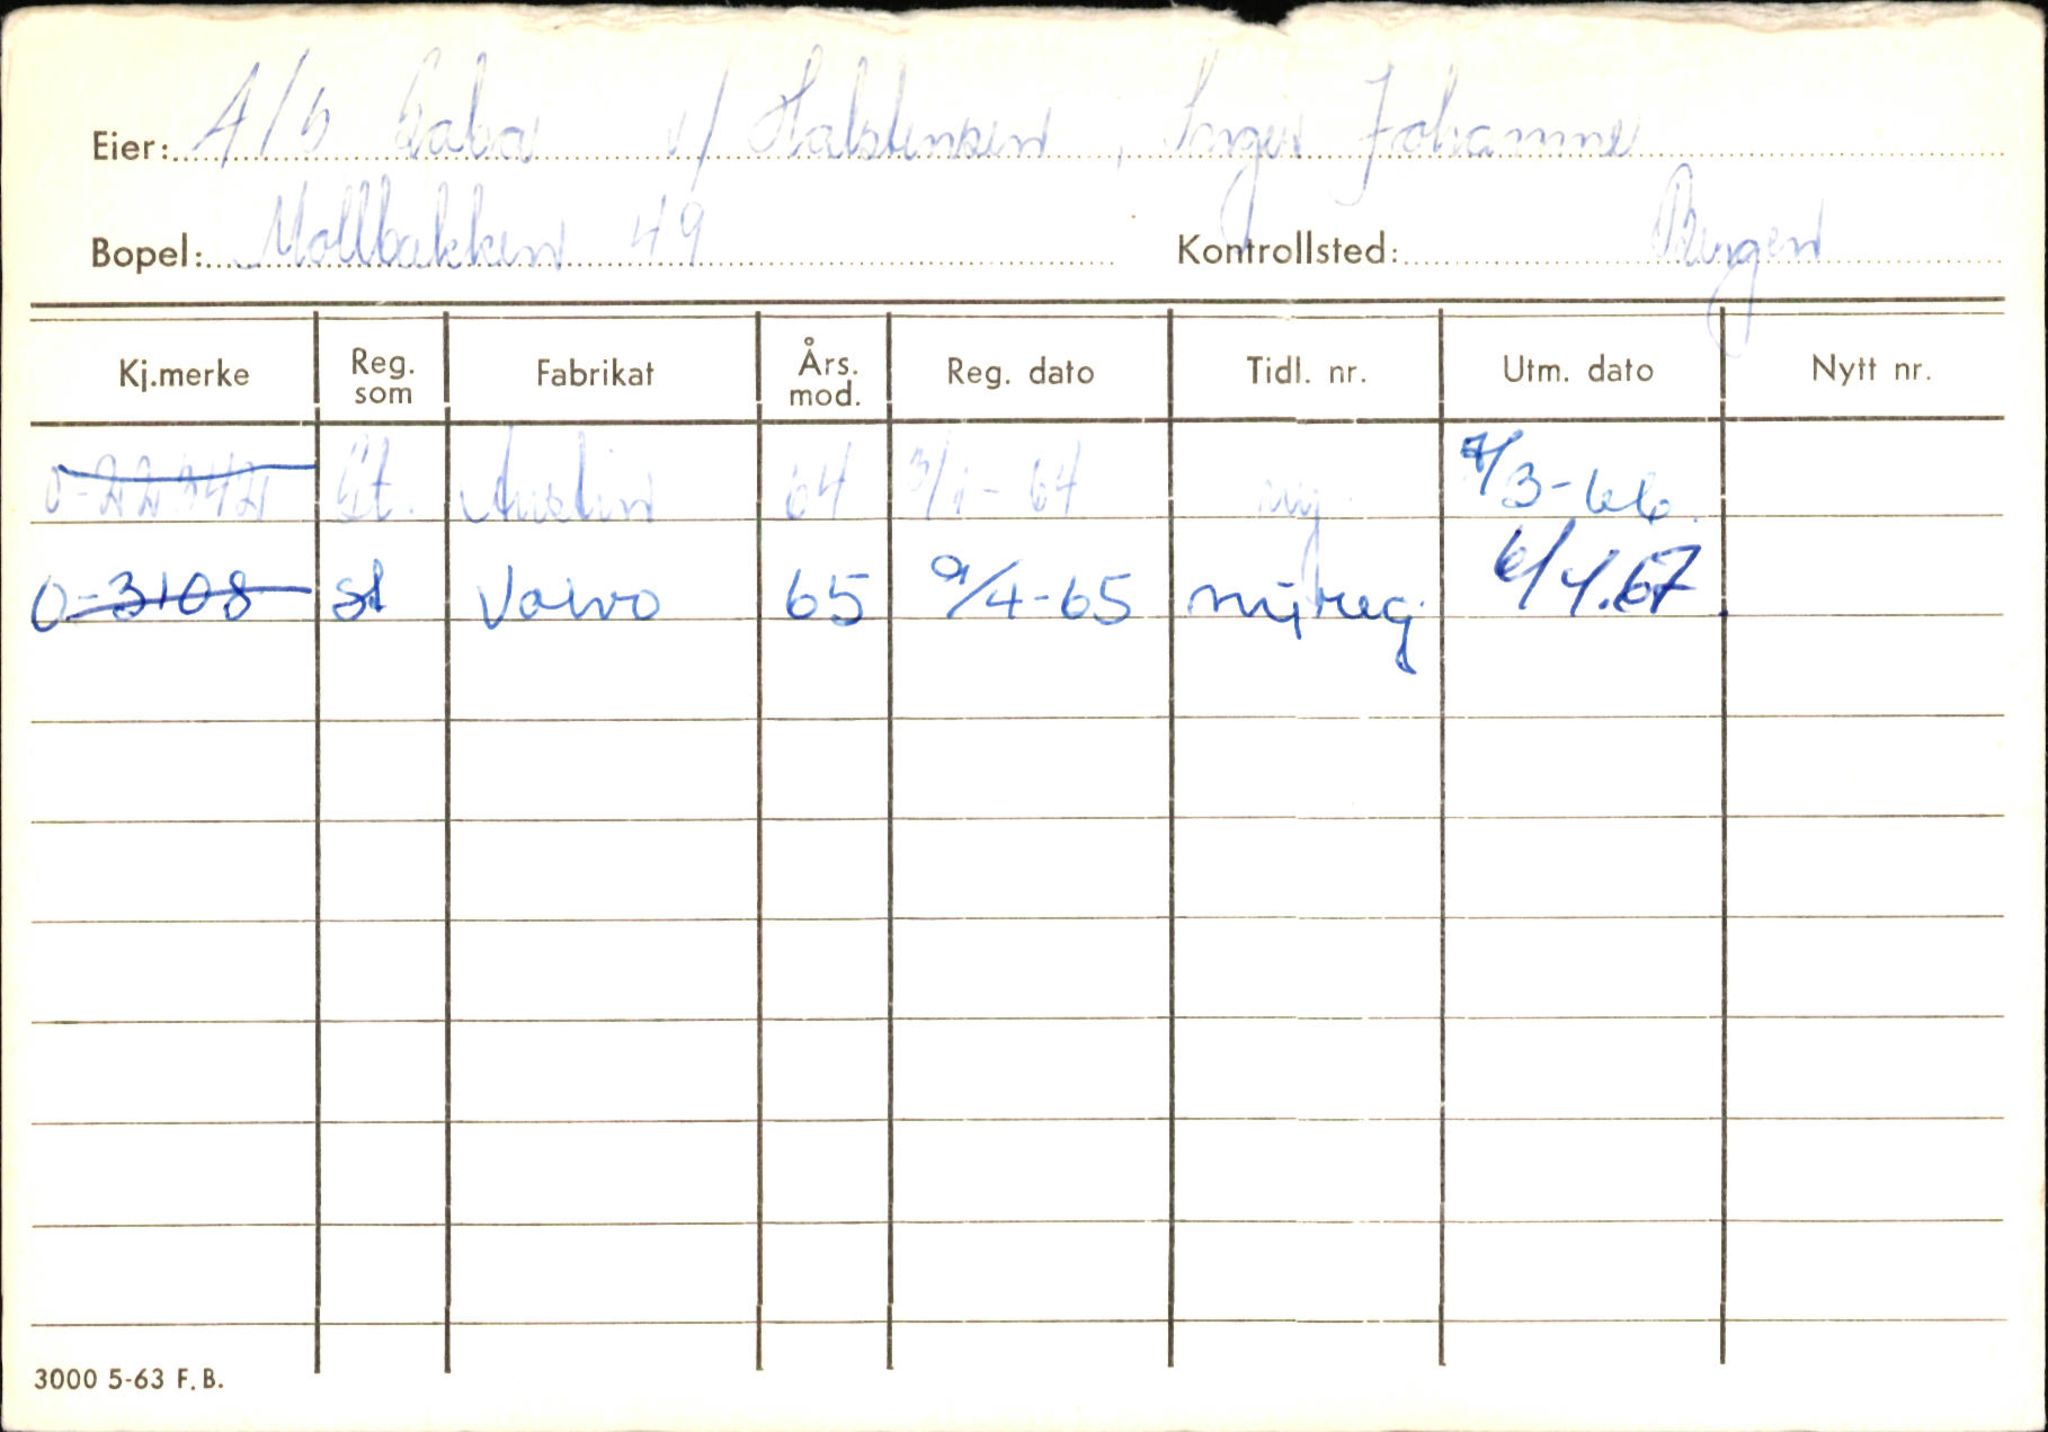 Eier: A/S v/ Halstensen, Inger Johanne
Bopel: Møllbakken 49 Kontrollsted: Bergen
Kj.merke Reg. som Fabrikat Års. mod. Reg. dato Tidl. nr. Utm. dato Nytt nr.
St. Austin 64 3/1-64 ny /3-66.
O-3108 st Volvo 65 9/4-65 nyreg. 6/4.67.
3000 5-63 F.B.